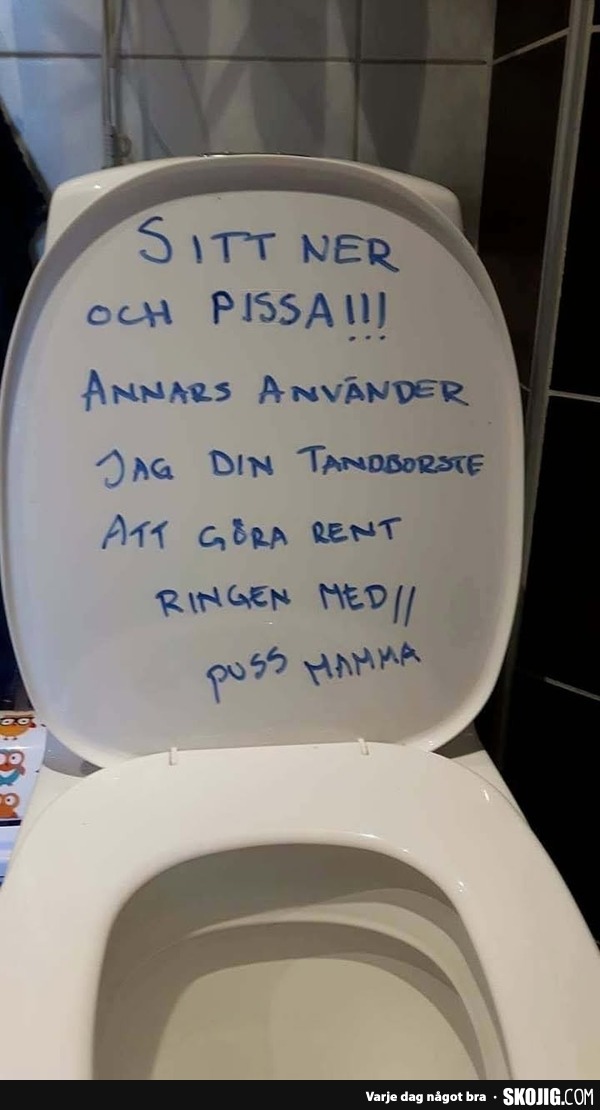 SITT NER
OCH PISSA!!!
ANNARS ANVÄNDER
JAG DIN TANDBORSTE
ATT GÖRA RENT
RINGEN MED//
PUSS MAMMA
Varje dag något bra · SKOJIG.COM